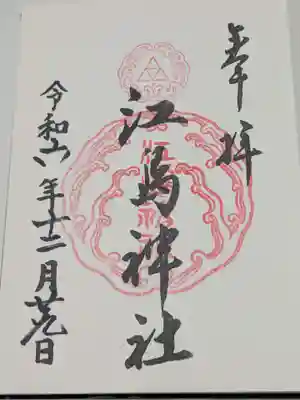 奉拝
江島神社
令和六年十二月廿九日